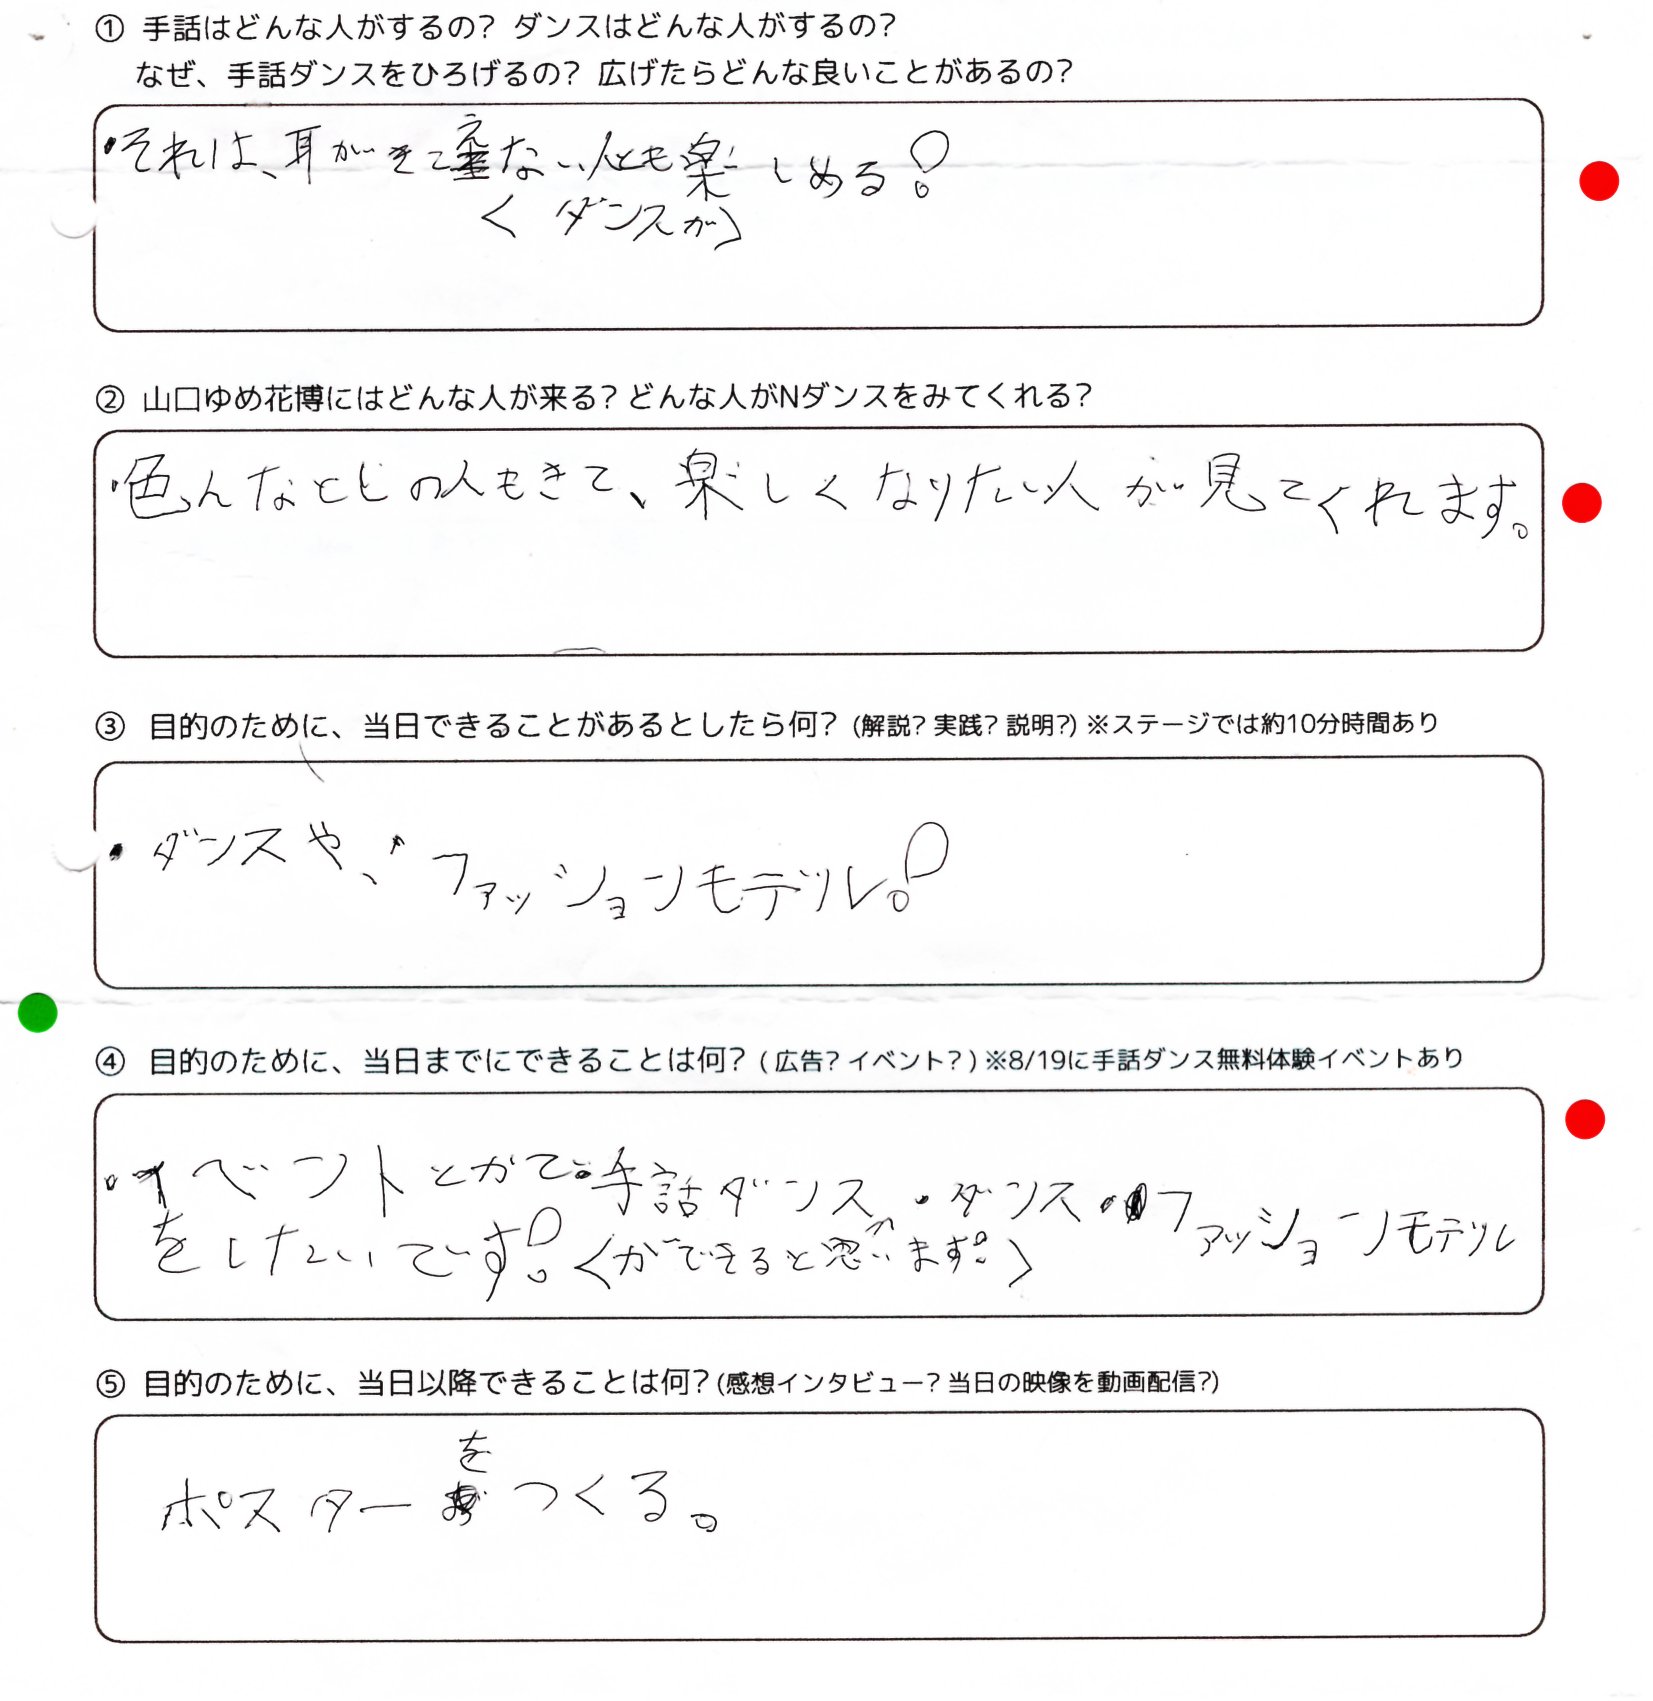 ① 手話はどんな人がするの? ダンスはどんな人がするの?
なぜ、手話ダンスをひろげるの? 広げたらどんな良いことがあるの?
・それは、耳がきこえない人とも楽しめる!
〈ダンスが〉
② 山口ゆめ花博にはどんな人が来る? どんな人がNダンスをみてくれる?
・色んなとしの人もきて、楽しくなりたい人が見てくれます。
③ 目的のために、当日できることがあるとしたら何? (解説? 実践? 説明?) ※ステージでは約10分時間あり
・ダンスや、ファッションモデル!
④ 目的のために、当日までにできることは何? ( 広告? イベント? ) ※8/19に手話ダンス無料体験イベントあり
・イベントとかで・手話ダンス・ダンス・ファッションモデル
をしたいです!〈ができると思います!〉
⑤ 目的のために、当日以降できることは何? (感想インタビュー? 当日の映像を動画配信?)
ポスターをつくる。